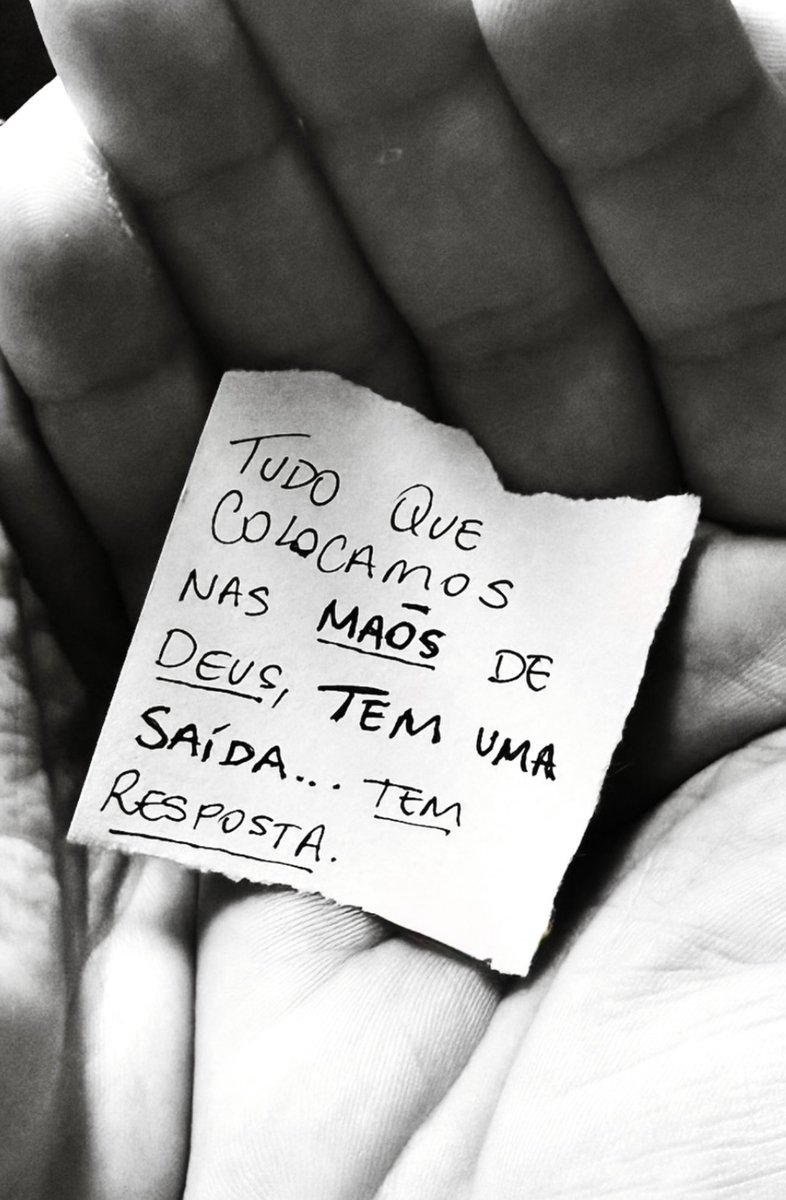 TUDO QUE
COLOCAMOS
NAS MAÕS DE
DEUS, TEM UMA
SAÍDA... TEM
RESPOSTA.